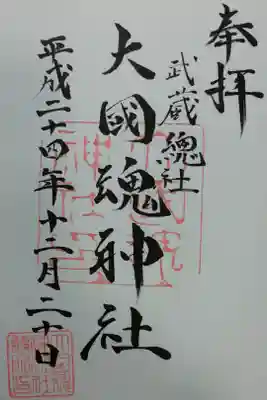 奉拝
武蔵總社
大國魂神社
平成二十四年十二月二十日